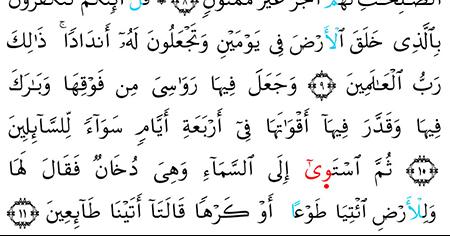 ٱلصَّٰلِحَٰتِ لَهُمْ أَجْرٌ غَيْرُ مَمْنُونٍ ﴿٨﴾ ۞ قُلْ أَئِنَّكُمْ لَتَكْفُرُونَ
بِٱلَّذِى خَلَقَ ٱلْأَرْضَ فِى يَوْمَيْنِ وَتَجْعَلُونَ لَهُۥٓ أَندَادًا ۚ ذَٰلِكَ
رَبُّ ٱلْعَٰلَمِينَ ﴿٩﴾ وَجَعَلَ فِيهَا رَوَٰسِىَ مِن فَوْقِهَا وَبَٰرَكَ
فِيهَا وَقَدَّرَ فِيهَآ أَقْوَٰتَهَا فِىٓ أَرْبَعَةِ أَيَّامٍ سَوَآءً لِّلسَّآئِلِينَ
﴿١٠﴾ ثُمَّ ٱسْتَو۪ىٰٓ إِلَى ٱلسَّمَآءِ وَهِىَ دُخَانٌ فَقَالَ لَهَا
وَلِلْأَرْضِ ٱئْتِيَا طَوْعًا أَوْ كَرْهًا قَالَتَآ أَتَيْنَا طَآئِعِينَ ﴿١١﴾